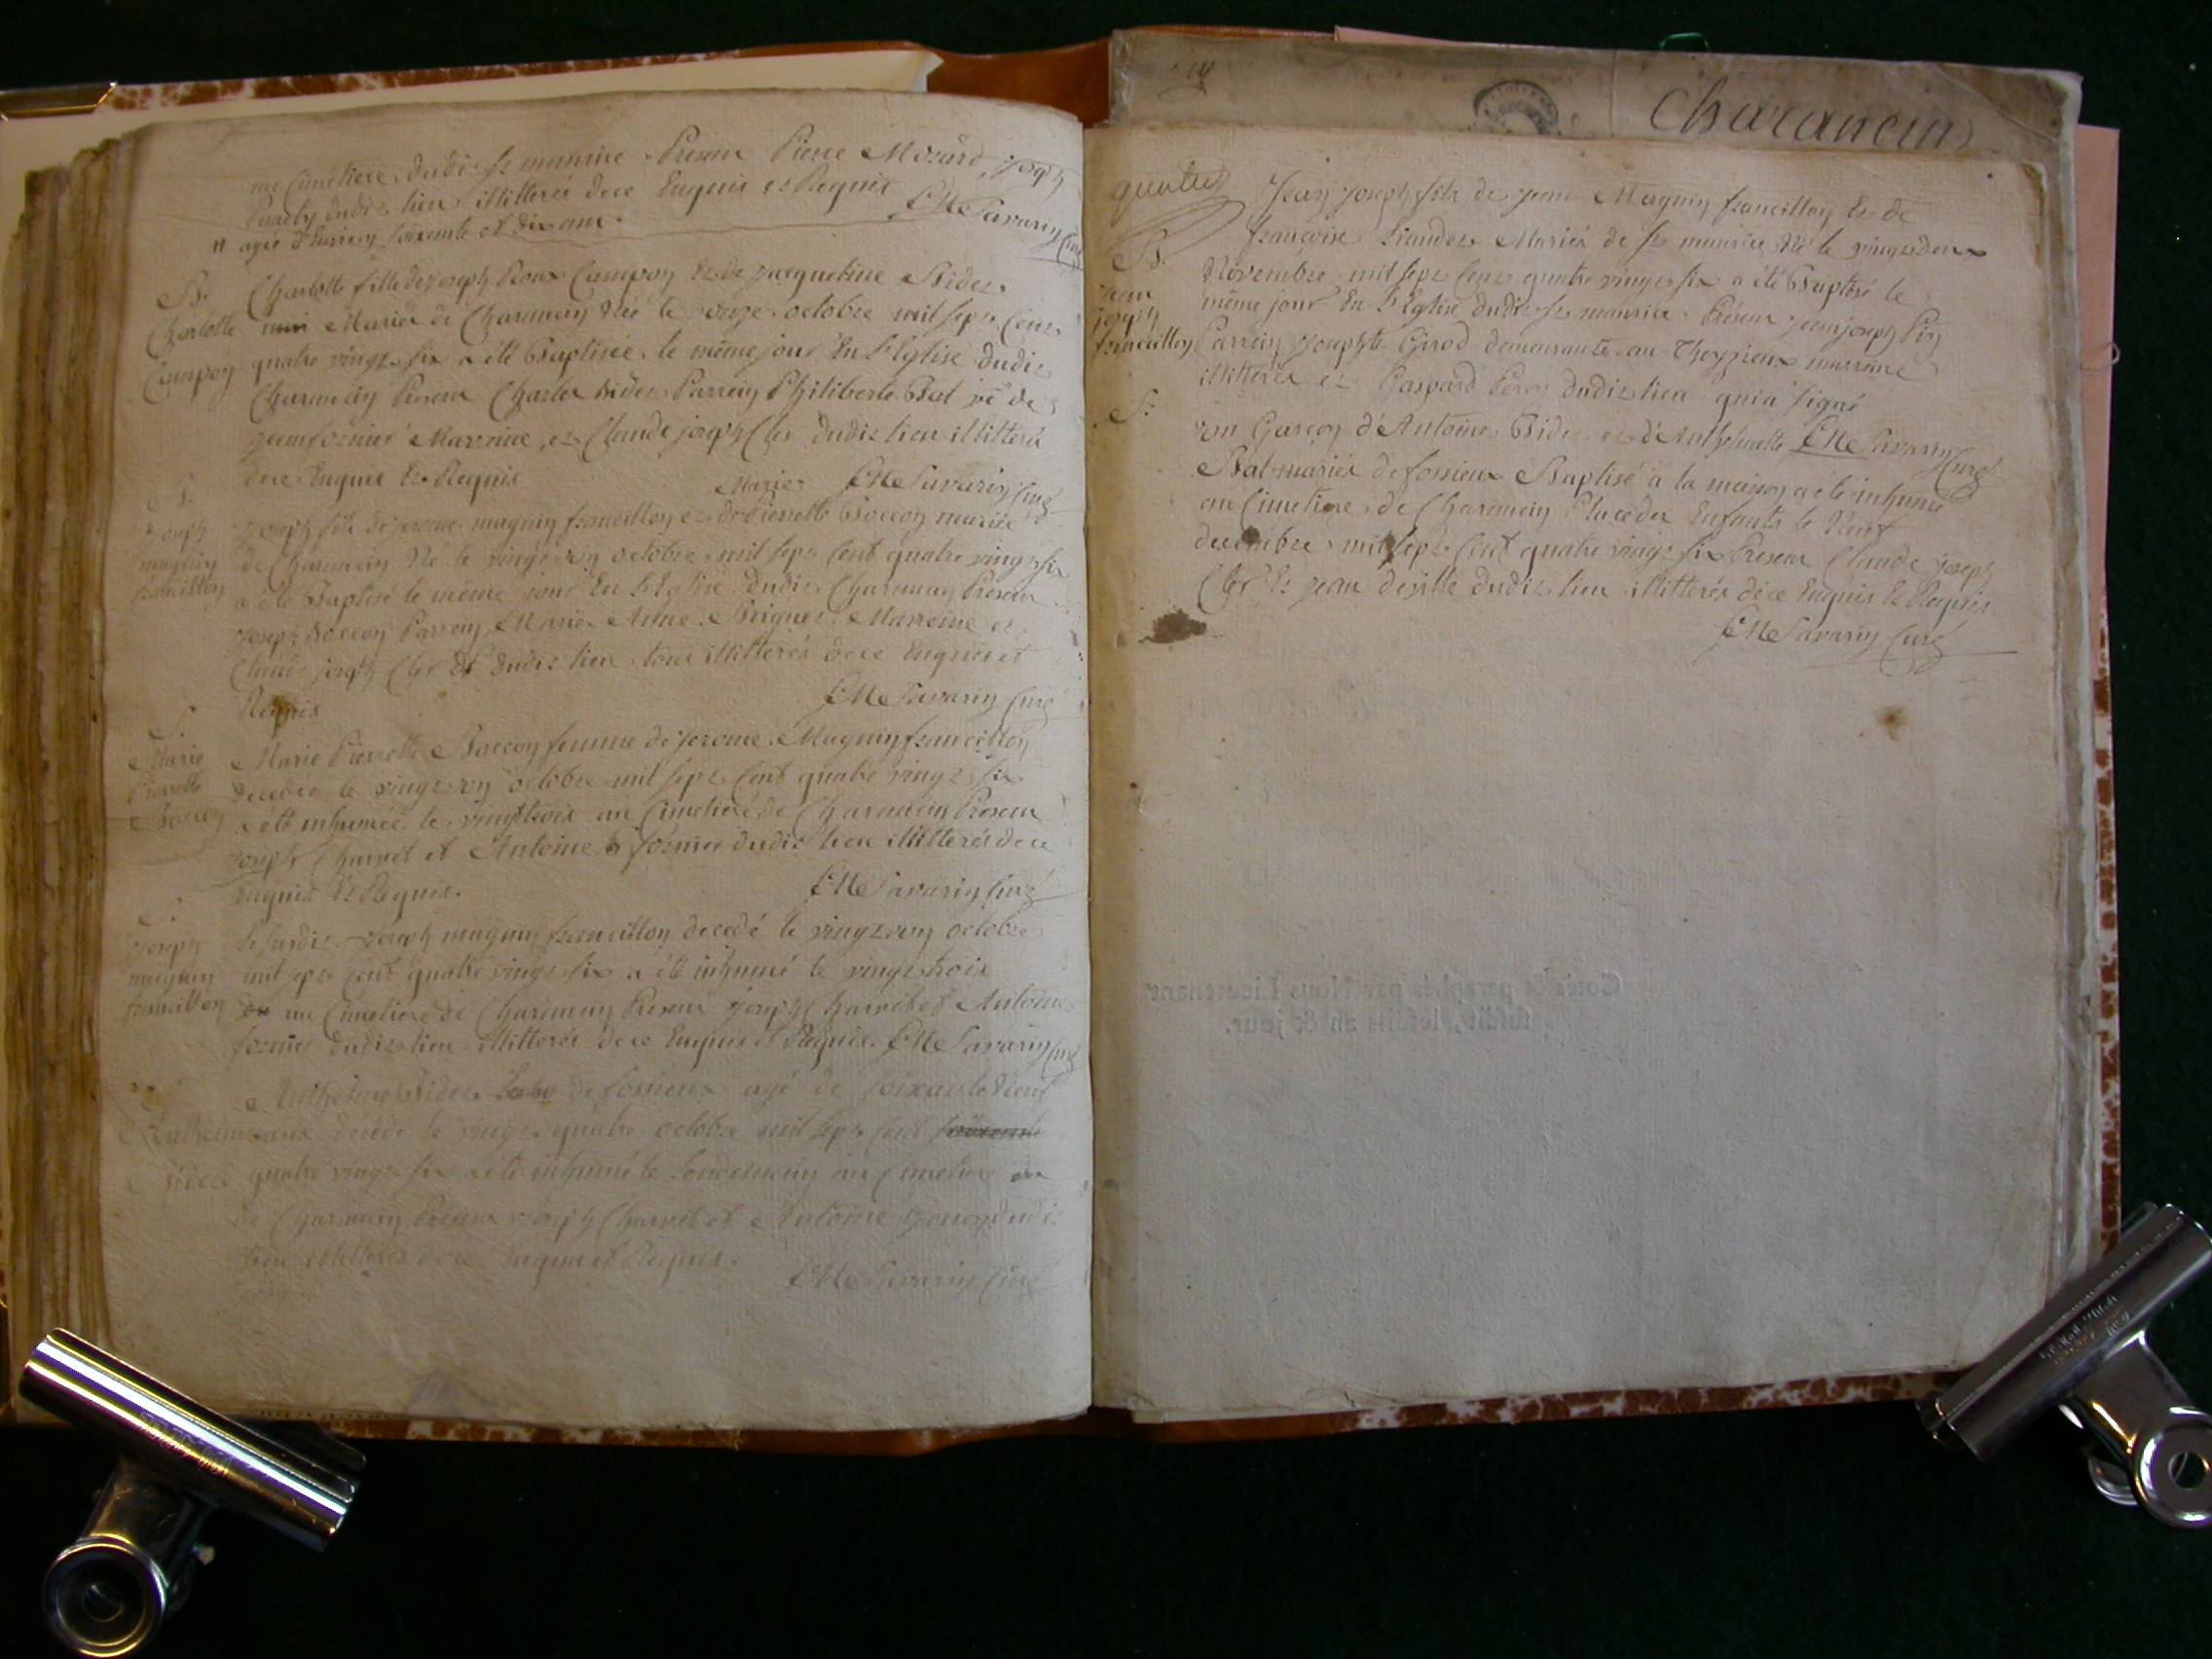 au Cimetiere dudit St maurice Present Pierre Mozard, joseph
dudit lieu illitterés de ce Enquis et Requis
EM Savarin Curé
agée d'Environ soixante et dix ans.
B.
Charlotte
Campoy
Charlotte fille de joseph Roux Campoy Et de jacqueline Bidet
Mariés de Charancin Née le onze octobre mil sept Cent
quatre vingt six a été Baptisée le même jour En L'Eglise dudit
Charancin Present Charles Bidet Parrein Philiberte Bal ve de
jean fornier Marreine, et Claude joseph Cler dudit lieu illitterés
de ce Enquis Et Requis
EM Savarin Curé
S.
joseph
magnin
francillon
Marie
joseph fils de jerome magnin francillon et de Pierrette Boccon mariés
de Charancin Né le vingt un octobre mil sept Cent quatre vingt six
a été Baptisé le même jour En L'Eglise dudit Charancin Present
joseph Boccon Parrein Marie Anne Marreine et
Claude joseph Cler dudit lieu tous illitterés de ce Enquis et
Requis
EM Savarin Curé
S.
Marie
Pierrette
Boccon
Marie Pierrette Boccon femme de jerome Magnin francillon
decedée le vingt un octobre mil sept Cent quatre vingt six
a été inhumée le vingt trois au Cimetiere de Charancin Present
joseph Charvet et Antoine fornier dudit lieu illitterés de ce
Enquis Et Requis.
EM Savarin Curé
S.
joseph
magnin
francillon
Le susdit joseph magnin francillon decedé le vingt un octobre
mil sept Cent quatre vingt six a été inhumé le vingt trois
au Cimetiere de Charancin Present joseph Charvet et Antoine
fornier dudit lieu illitterés de ce Enquis et Requis. EM Savarin Curé
Bidet
Anthelme Bidet de fossieux agé de soixante Neuf
ans decedé le vingt quatre octobre mil sept cent
quatre vingt six a été inhumé le Lendemain au Cimetiere
de Charancin Present joseph Charvet et Antoine dudit
lieu illitterés de ce Enquis et Requis.
EM Savarin Curé
Charancin
quatre
B.
jean
joseph
francillon
Jean joseph fils de Magnin francillon Et de
françoise Mariés de St maurice Né le vingt deux
Novembre mil sept Cent quatre vingt six a été Baptisé le
même jour En L'Eglise dudit St maurice Présent jean joseph Pin
Parrein josephte Girod demeurante au marraine
illitterés et Gaspard dudit lieu qui a signé
EM Savarin Curé
S.
un Garçon d'Antoine Bidet et d'Anthelmette
Bal mariés de fossieux Baptisé à la maison a été inhumé
au Cimetiere de Charancin Place des Enfants le Neuf
decembre mil sept Cent quatre vingt six Present Claude joseph
Cler Et jean dudit lieu illitterés de ce Enquis Et Requis
EM Savarin Curé
Cotés & paraphés par Nous Lieutenant
susdit, lesdits an & jour.